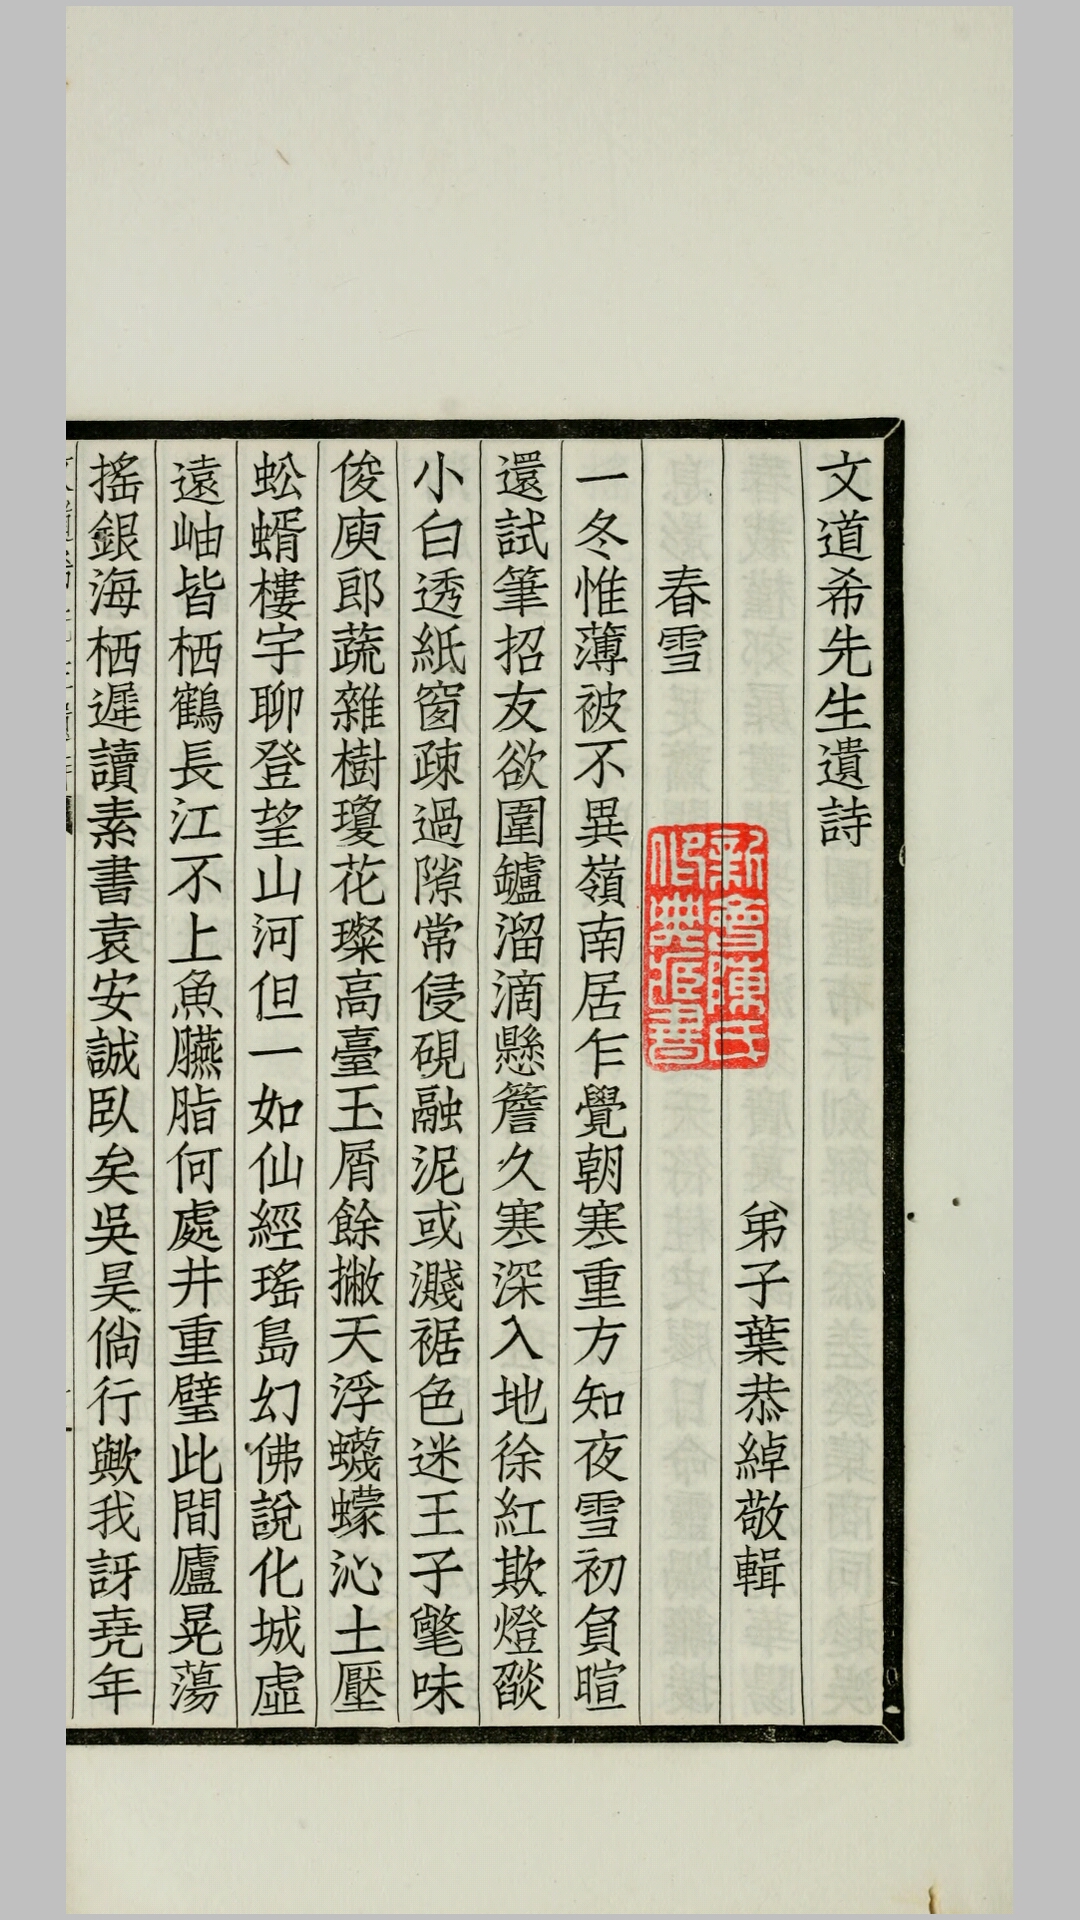 文道希先生遺詩
弟子葉恭綽敬輯
春雪
一冬惟薄被不異嶺南居乍覺朝寒重方知夜雪初負暄
還試筆招友欲圍鑪溜滴懸簷久寒深入地徐紅欺燈燄
小白透紙窗疎過隙常侵硯融泥或濺裾色迷王子氅味
俊庾郎蔬雜樹瓊花璨高臺玉屑餘撇天浮蠛蠓沁土壓
蚣蝑樓宇聊登望山河但一如仙經瑤島幻佛說化城虛
遠岫皆栖鶴長江不上魚臙脂何處井重璧此間廬晃蕩
搖銀海栖遲讀素書袁安誠臥矣吳昊倘行歟我訝堯年
新會陳氏
所典掖書